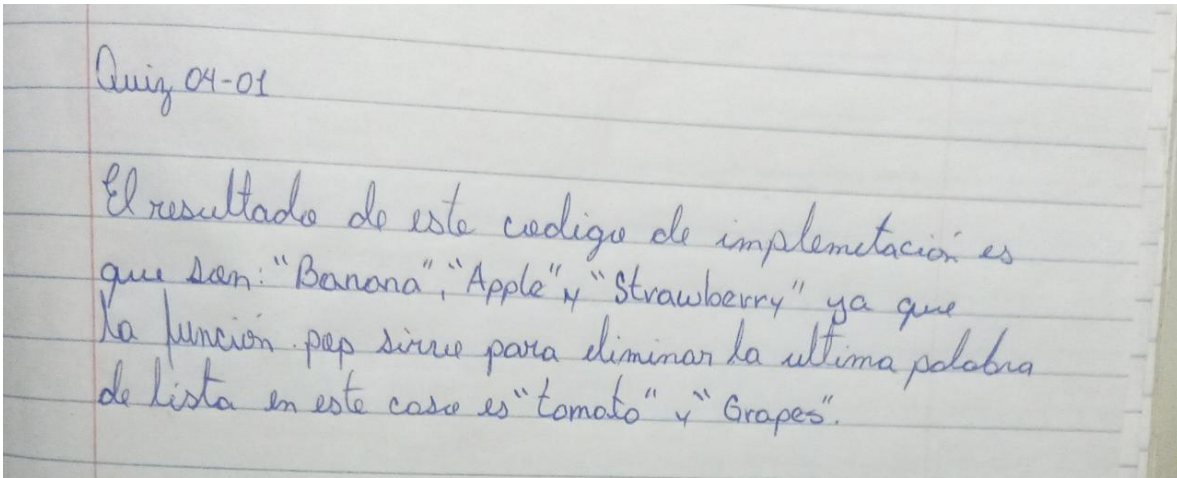 Quiz 04-01
El resultado de este codigo de implemetación es
que son: "Banana", "Apple" y "Strawberry" ya que
la función .pop sirve para eliminar la ultima palabra
de lista en este caso es "tomato" y "Grapes".